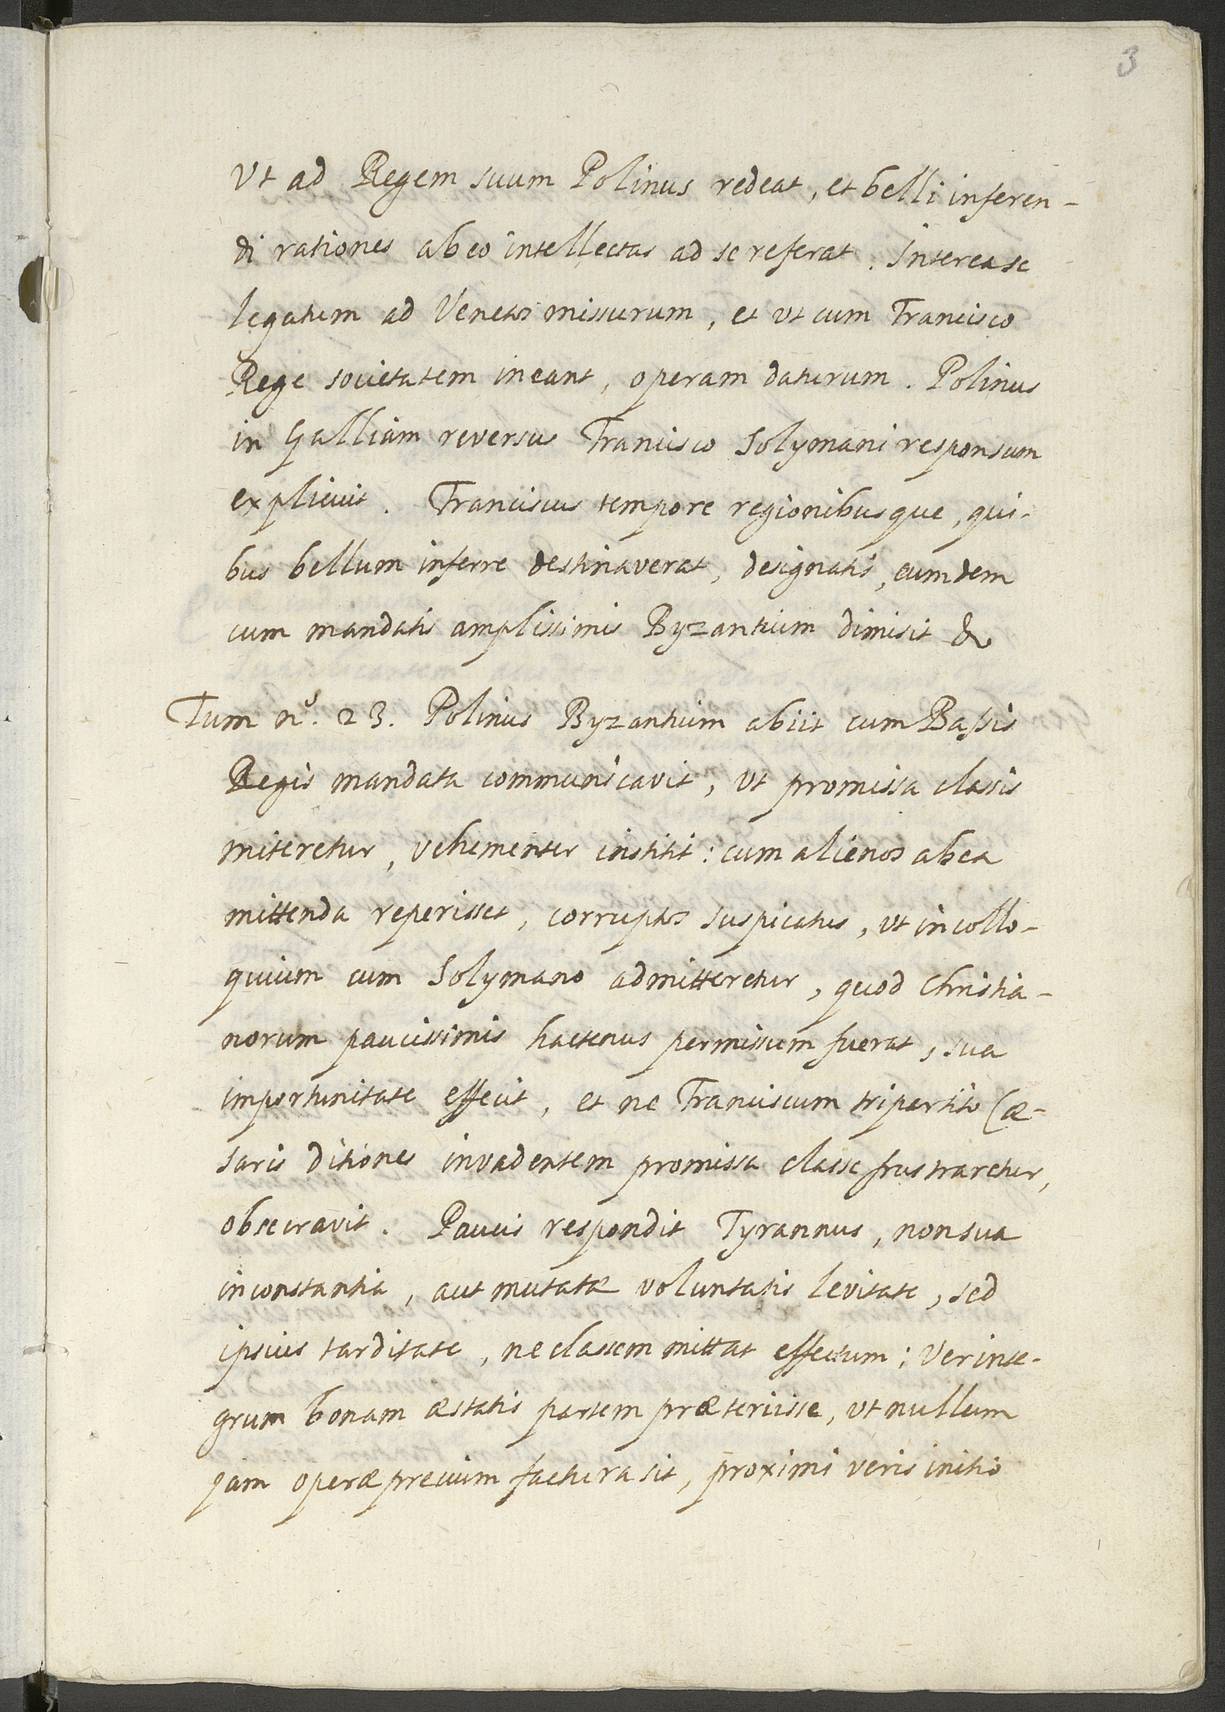 3
Vt ad Regem suum Polinus redeat, et belli inferen-
di rationes ab eo intellectas ad se referat. Interea se
legatum ad Venetos missurum, et vt cum Francisco
Rege societatem ineant, operam daturum. Polinus
in Galliam reversus Francisco Solymani responsum
explicuit. Franciscus tempore regionibusque, qui-
bus bellum inferre destinaverat, designatis, eumdem
cum mandatis amplissimis Byzantium dimisit &
Tum n.º 23. Polinus Byzantium abiit cum Bassis
Regis mandata communicavit, vt promissa classis
miteretur, vehementer institit: cum alienos ab ea
mittenda reperisset, corruptos suspicatus, vt in collo-
quium cum Solymano admitteretur, quod Christia-
norum paucissimis hactenus permissum fuerat, sua
importunitate effecit, et ne Franciscum tripartito Cæ-
saris ditiones invadentem promissa classe frustraretur,
obsecravit. Paucis respondit Tyrannus, non sua
inconstantia, aut mutatæ voluntatis levitate, sed
ipsius tarditate, ne classem mittat effectum: Ver inte-
grum bonam æstatis partem præteriisse, vt nullum
jam operæ precium factura sit, proximi veris initio